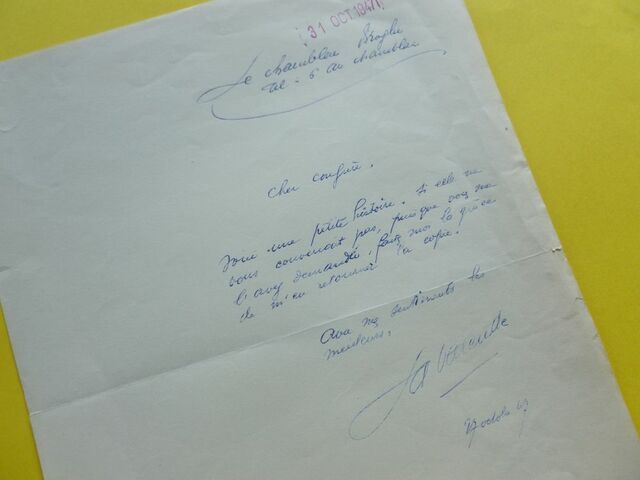 31 OCT 1947
Le chamblac Broglie
Tel = 6 au chamblac
Cher confrère.
Voici une petite histoire. Si elle ne
vous convenait pas, puisque vous me
l'avez demandée, faites moi la grâce
de m'en retourner la copie.
Avec mes sentiments les
meilleurs.
27 octobre 47